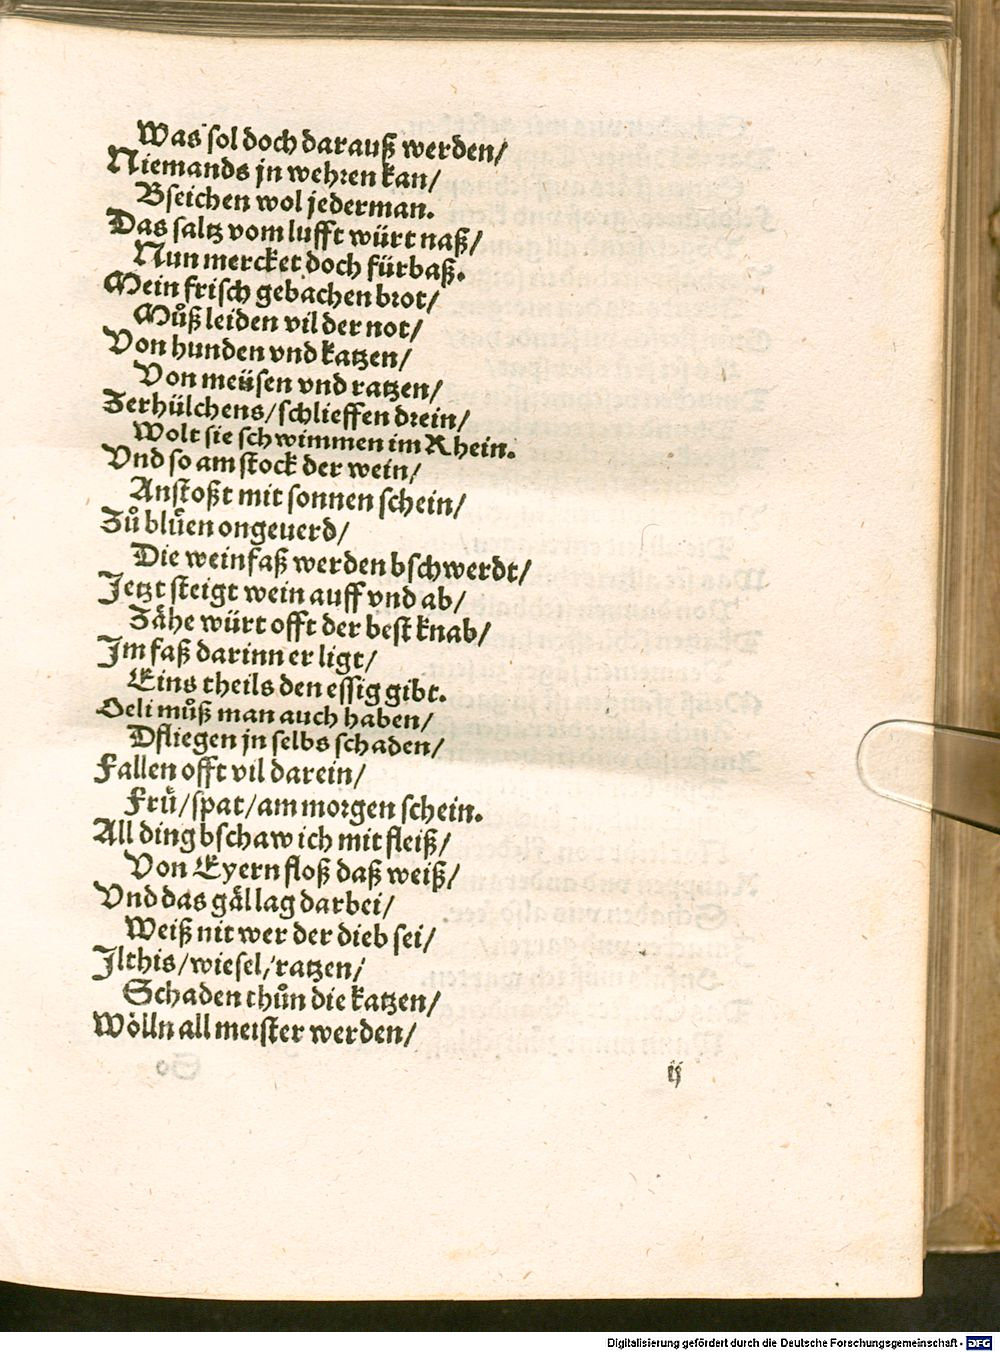 Was sol doch darauß werden/
Niemands jn wehren kan/
Bseichen wol jederman.
Das saltz vom lufft würt naß/
Nun mercket doch fürbaß.
Mein frisch gebachen brot/
Muͦß leiden vil der not/
Von hunden vnd katzen/
Von meüsen vnd ratzen/
Zerhülchens/schlieffen drein/
Wolt sie schwimmen im Rhein.
Vnd so am stock der wein/
Anstoßt mit sonnen schein/
Zuͦ bluͤen ongeuerd/
Die weinfaß werden bschwerdt/
Jetzt steigt wein auff vnd ab/
Zaͤhe würt offt der best knab/
Im faß darinn er ligt/
Eins theils den essig gibt.
Oeli muͦß man auch haben/
Dfliegen jn selbs schaden/
Fallen offt vil darein/
Fruͤ/spat/am morgen schein.
All ding bschaw ich mit fleiß/
Von Eyern floß daß weiß/
Vnd das gaͤllag darbei/
Weiß nit wer der dieb sei/
Ilthis/wiesel/ratzen/
Schaden thuͦn die katzen/
Woͤlln all meister werden/
ij
Digitalisierung gefördert durch die Deutsche Forschungsgemeinschaft - DFG